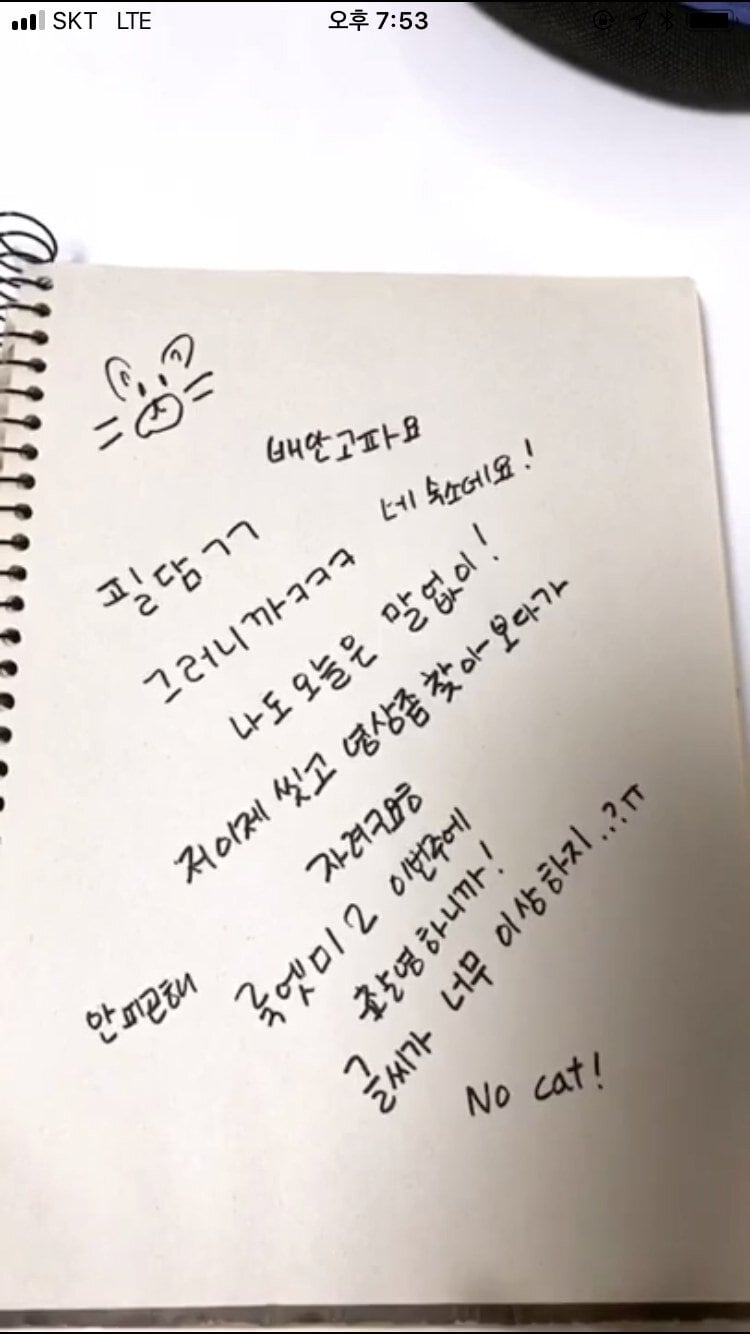 SKT LTE 오후 7:53
배안고파요
네 숙소데요!
필담ㄱㄱ
그러니까ㅋㅋㅋ
나도 오늘은 말없이!
저이제 씻고 영상좀 찾아보다가
자려구요
룩엣미2 이번주에
안피곤해
촬영하니까!
글씨가 너무 이상하지..?ㅠ
No cat!